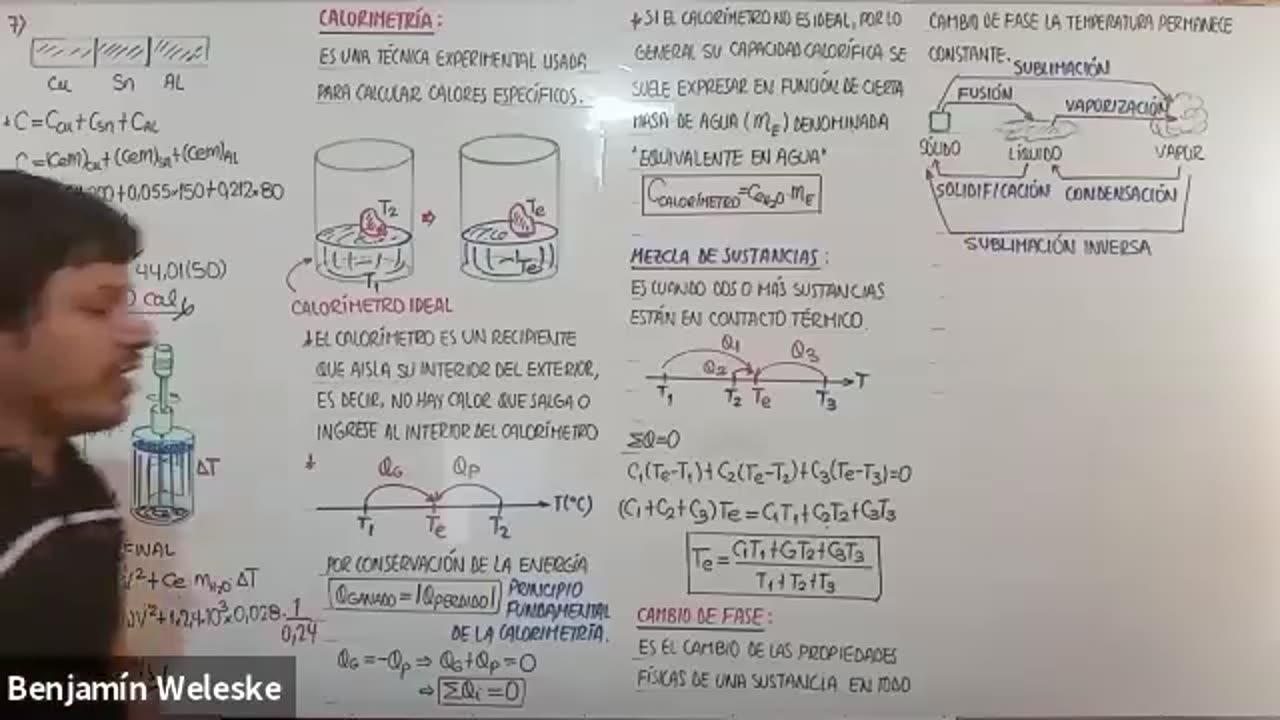 7)
Cu Sn AL
C=Ccu+Csn+CAL
C=(Cem)cu+(Cem)sn+(Cem)AL
200+0,055×150+0,212×80
44,01(50)
cal
ΔT
FINAL
²+Ce mH₂O ΔT
²+1.2,4.10³×0,028.1/0,24
CALORIMETRÍA:
ES UNA TÉCNICA EXPERIMENTAL USADA
PARA CALCULAR CALORES ESPECÍFICOS.
T2 ⇒ Te
T1 Te
CALORÍMETRO IDEAL
EL CALORÍMETRO ES UN RECIPIENTE
QUE AISLA SU INTERIOR DEL EXTERIOR,
ES DECIR, NO HAY CALOR QUE SALGA O
INGRESE AL INTERIOR DEL CALORÍMETRO
QG QP
T1 Te T2 T(°C)
POR CONSERVACIÓN DE LA ENERGÍA
QGANADO=|QPERDIDO| PRINCIPIO
FUNDAMENTAL
DE LA CALORIMETRÍA.
QG=-QP ⇒ QG+QP=0
⇒ ΣQi=0
SI EL CALORÍMETRO NO ES IDEAL, POR LO
GENERAL SU CAPACIDAD CALORÍFICA SE
SUELE EXPRESAR EN FUNCIÓN DE CIERTA
MASA DE AGUA (mE) DENOMINADA
"EQUIVALENTE EN AGUA"
CCALORÍMETRO=CeH₂O.mE
MEZCLA DE SUSTANCIAS:
ES CUANDO DOS O MÁS SUSTANCIAS
ESTÁN EN CONTACTO TÉRMICO.
Q1 Q2 Q3
T1 T2 Te T3 T
ΣQ=0
C1(Te-T1)+C2(Te-T2)+C3(Te-T3)=0
(C1+C2+C3)Te=C1T1+C2T2+C3T3
Te=C1T1+C2T2+C3T3/T1+T2+T3
CAMBIO DE FASE:
ES EL CAMBIO DE LAS PROPIEDADES
FÍSICAS DE UNA SUSTANCIA EN TODO
CAMBIO DE FASE LA TEMPERATURA PERMANECE
CONSTANTE.
SUBLIMACIÓN
FUSIÓN VAPORIZACIÓN
SÓLIDO LÍQUIDO VAPOR
SOLIDIFICACIÓN CONDENSACIÓN
SUBLIMACIÓN INVERSA
Benjamín Weleske